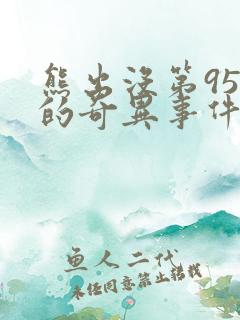 熊出没第95
的奇異事件
鱼人二代
未经同意禁止转载